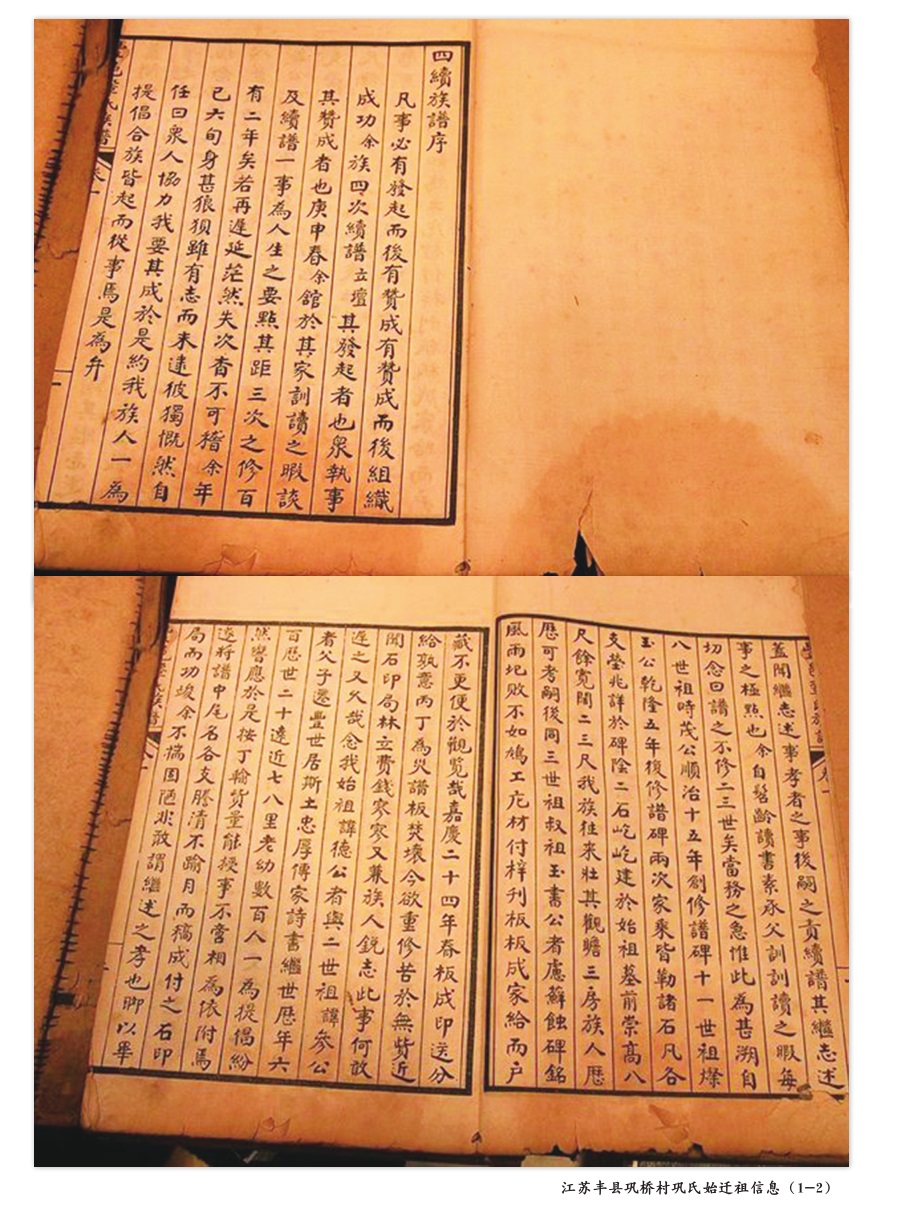 四續族譜序
凡事必有發起而後有贊成有贊成而後組織
成功余族四次續譜立壇其發起者也衆執事
其贊成者也庚申春余舘於其家訓讀之暇談
及續譜一事為人生之要點其距三次之修百
有二年矣若再遲延茫然失次杳不可稽余年
已六旬身甚狼狽雖有志而未逮彼獨慨然自
任曰衆人協力我要其成於是約我族人一為
提倡合族皆起而從事焉是為弁
氏族譜
卷一
蓋聞繼志述事孝者之事後嗣之責續譜其繼志述
事之極點也余自髫齡讀書素承父訓訓讀之暇每
切念曰譜之不修二三世矣當務之急惟此為甚溯自
八世祖時茂公順治十五年創修譜碑十一世祖燦
玉公乾隆五年復修譜碑兩次家乘皆勒諸石凡各
支塋兆詳於碑陰二石屹屹建於始祖墓前崇高八
尺餘寬闊二三尺我族往來壯其觀瞻三房族人歷
歷可考嗣後同三世祖叔祖玉書公者慮蘚蝕碑銘
風雨圮敗不如鳩工庀材付梓刊板板成家給而戶
藏不更便於觀覽哉嘉慶二十四年春板成印送分
給孰意丙丁為災譜板焚壞今欲重修苦於無貲近
聞石印局林立費錢寥寥又兼族人銳志此事何敢
遲之又久哉念我始祖諱德公者與二世祖諱參公
者父子遷豐世居斯土忠厚傳家詩書繼世歷年六
百歷世二十遠近七八里老幼數百人一為提倡紛
然響應於是按丁輸貲量能授事不啻相為依附焉
遂將譜中尾名各支謄清不踰月而稿成付之石印
局而功竣余不揣固陋非敢謂繼述之孝也聊以畢
氏族譜
江苏丰县巩桥村巩氏始迁祖信息（1-2）